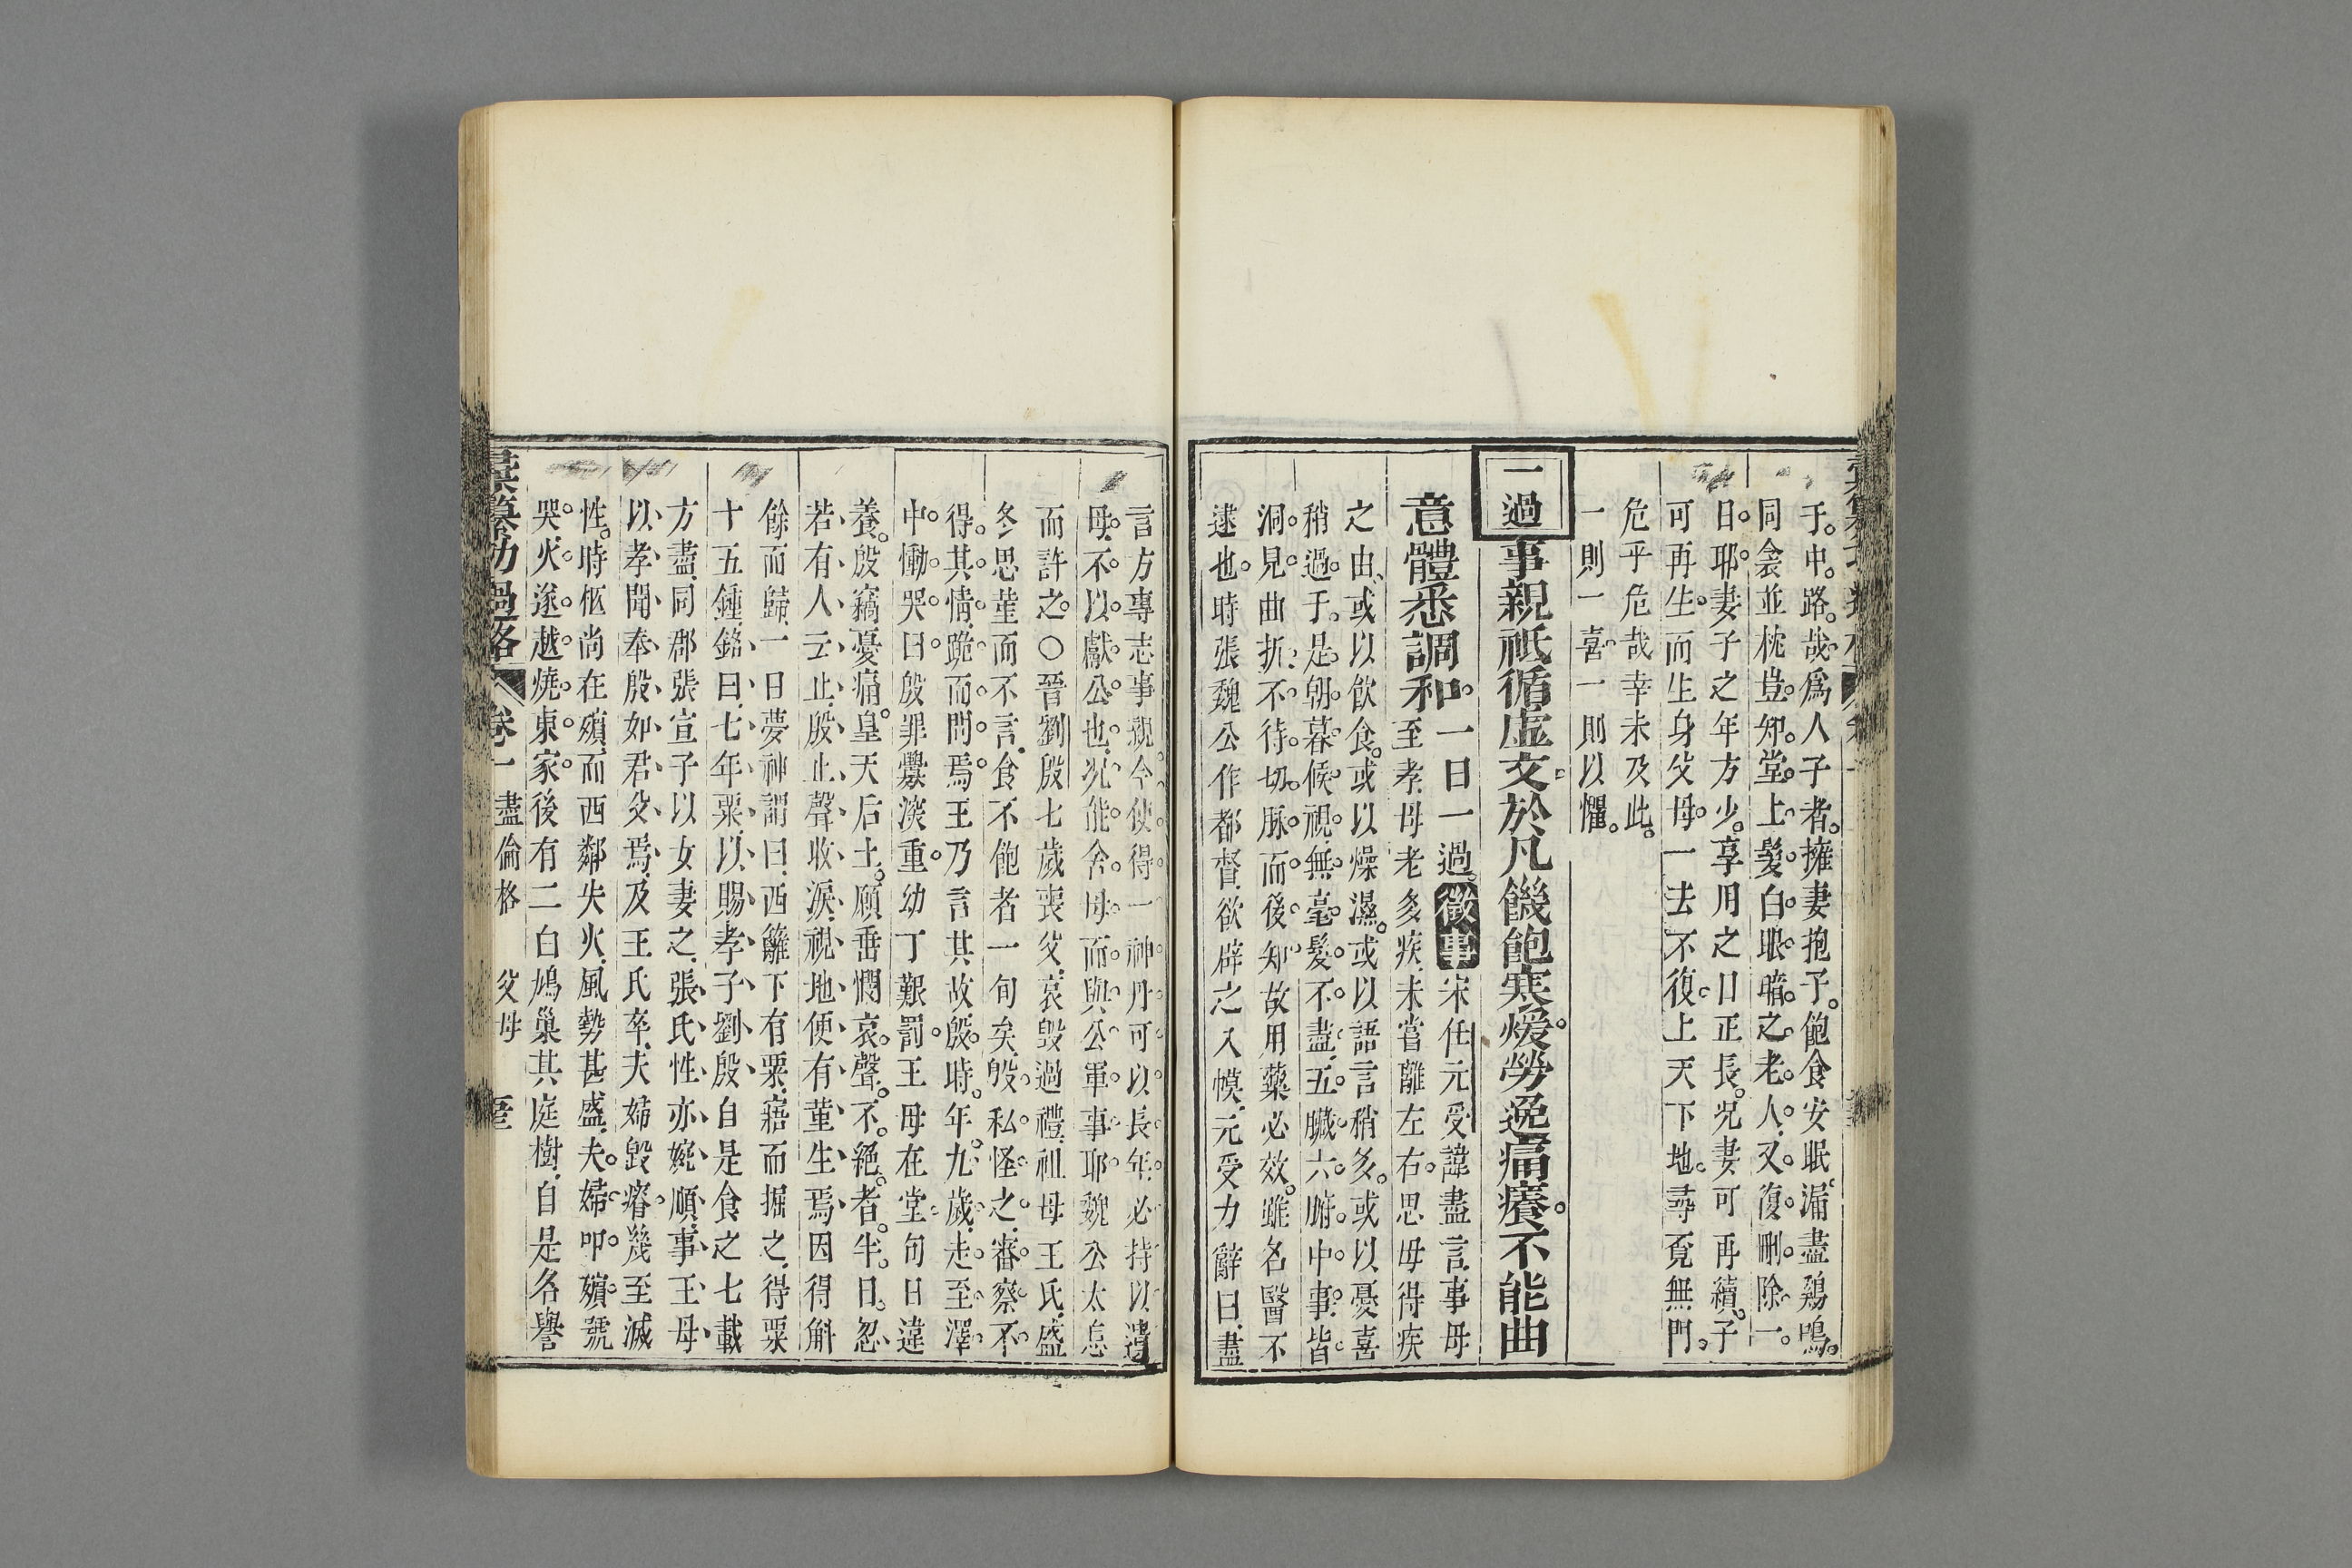 于中路哉爲人子者擁妻抱子飽食安眠漏盡鷄鳴
同衾並枕豈知堂上髮白眼暗之老人又復刪除一
日耶妻子之年方少享用之日正長况妻可再續子
可再生而生身父母一去不復上天下地尋覓無門
危乎危哉幸未及此
一則一喜一則以懼
一過
事親祇循虛文於凡饑飽寒煖勞逸痛癢不能曲
意體悉調和
一日一過徵事宋任元受諱盡言事母
至孝母老多疾未嘗離左右思母得疾
之由或以飲食或以燥濕或以語言稍多或以憂喜
稍過于是朝暮候視無毫髮不盡五臟六腑中事皆
洞見曲折不待切脉而後知故用藥必效雖名醫不
逮也時張魏公作都督欲辟之入幙元受力辭曰盡
言方專志事親今使得一神丹可以長年必持以遺
母不以獻公也况能舍母而與公軍事耶魏公太息
而許之○晉劉殷七歲喪父哀毀過禮祖母王氏盛
冬思菫而不言食不飽者一旬矣殷私怪之審察不
得其情跪而問焉王乃言其故殷時年九歲走至澤
中慟哭曰殷罪釁深重幼丁艱罰王母在堂旬日違
養殷竊憂痛皇天后土願垂憫哀聲不絕者半日忽
若有人云止殷止聲收淚視地便有菫生焉因得斛
餘而歸一日夢神謂曰西籬下有粟寤而掘之得粟
十五鍾銘曰七年粟以賜孝子劉殷自是食之七載
方盡同郡張宣子以女妻之張氏性亦婉順事王母
以孝聞奉殷如君父焉及王氏卒夫婦毀瘠幾至滅
性時柩尚在殯而西鄰失火風勢甚盛夫婦叩殯號
哭火遂越燒東家後有二白鳩巢其庭樹自是名譽
彙纂功過格 卷一 盡倫格 父母